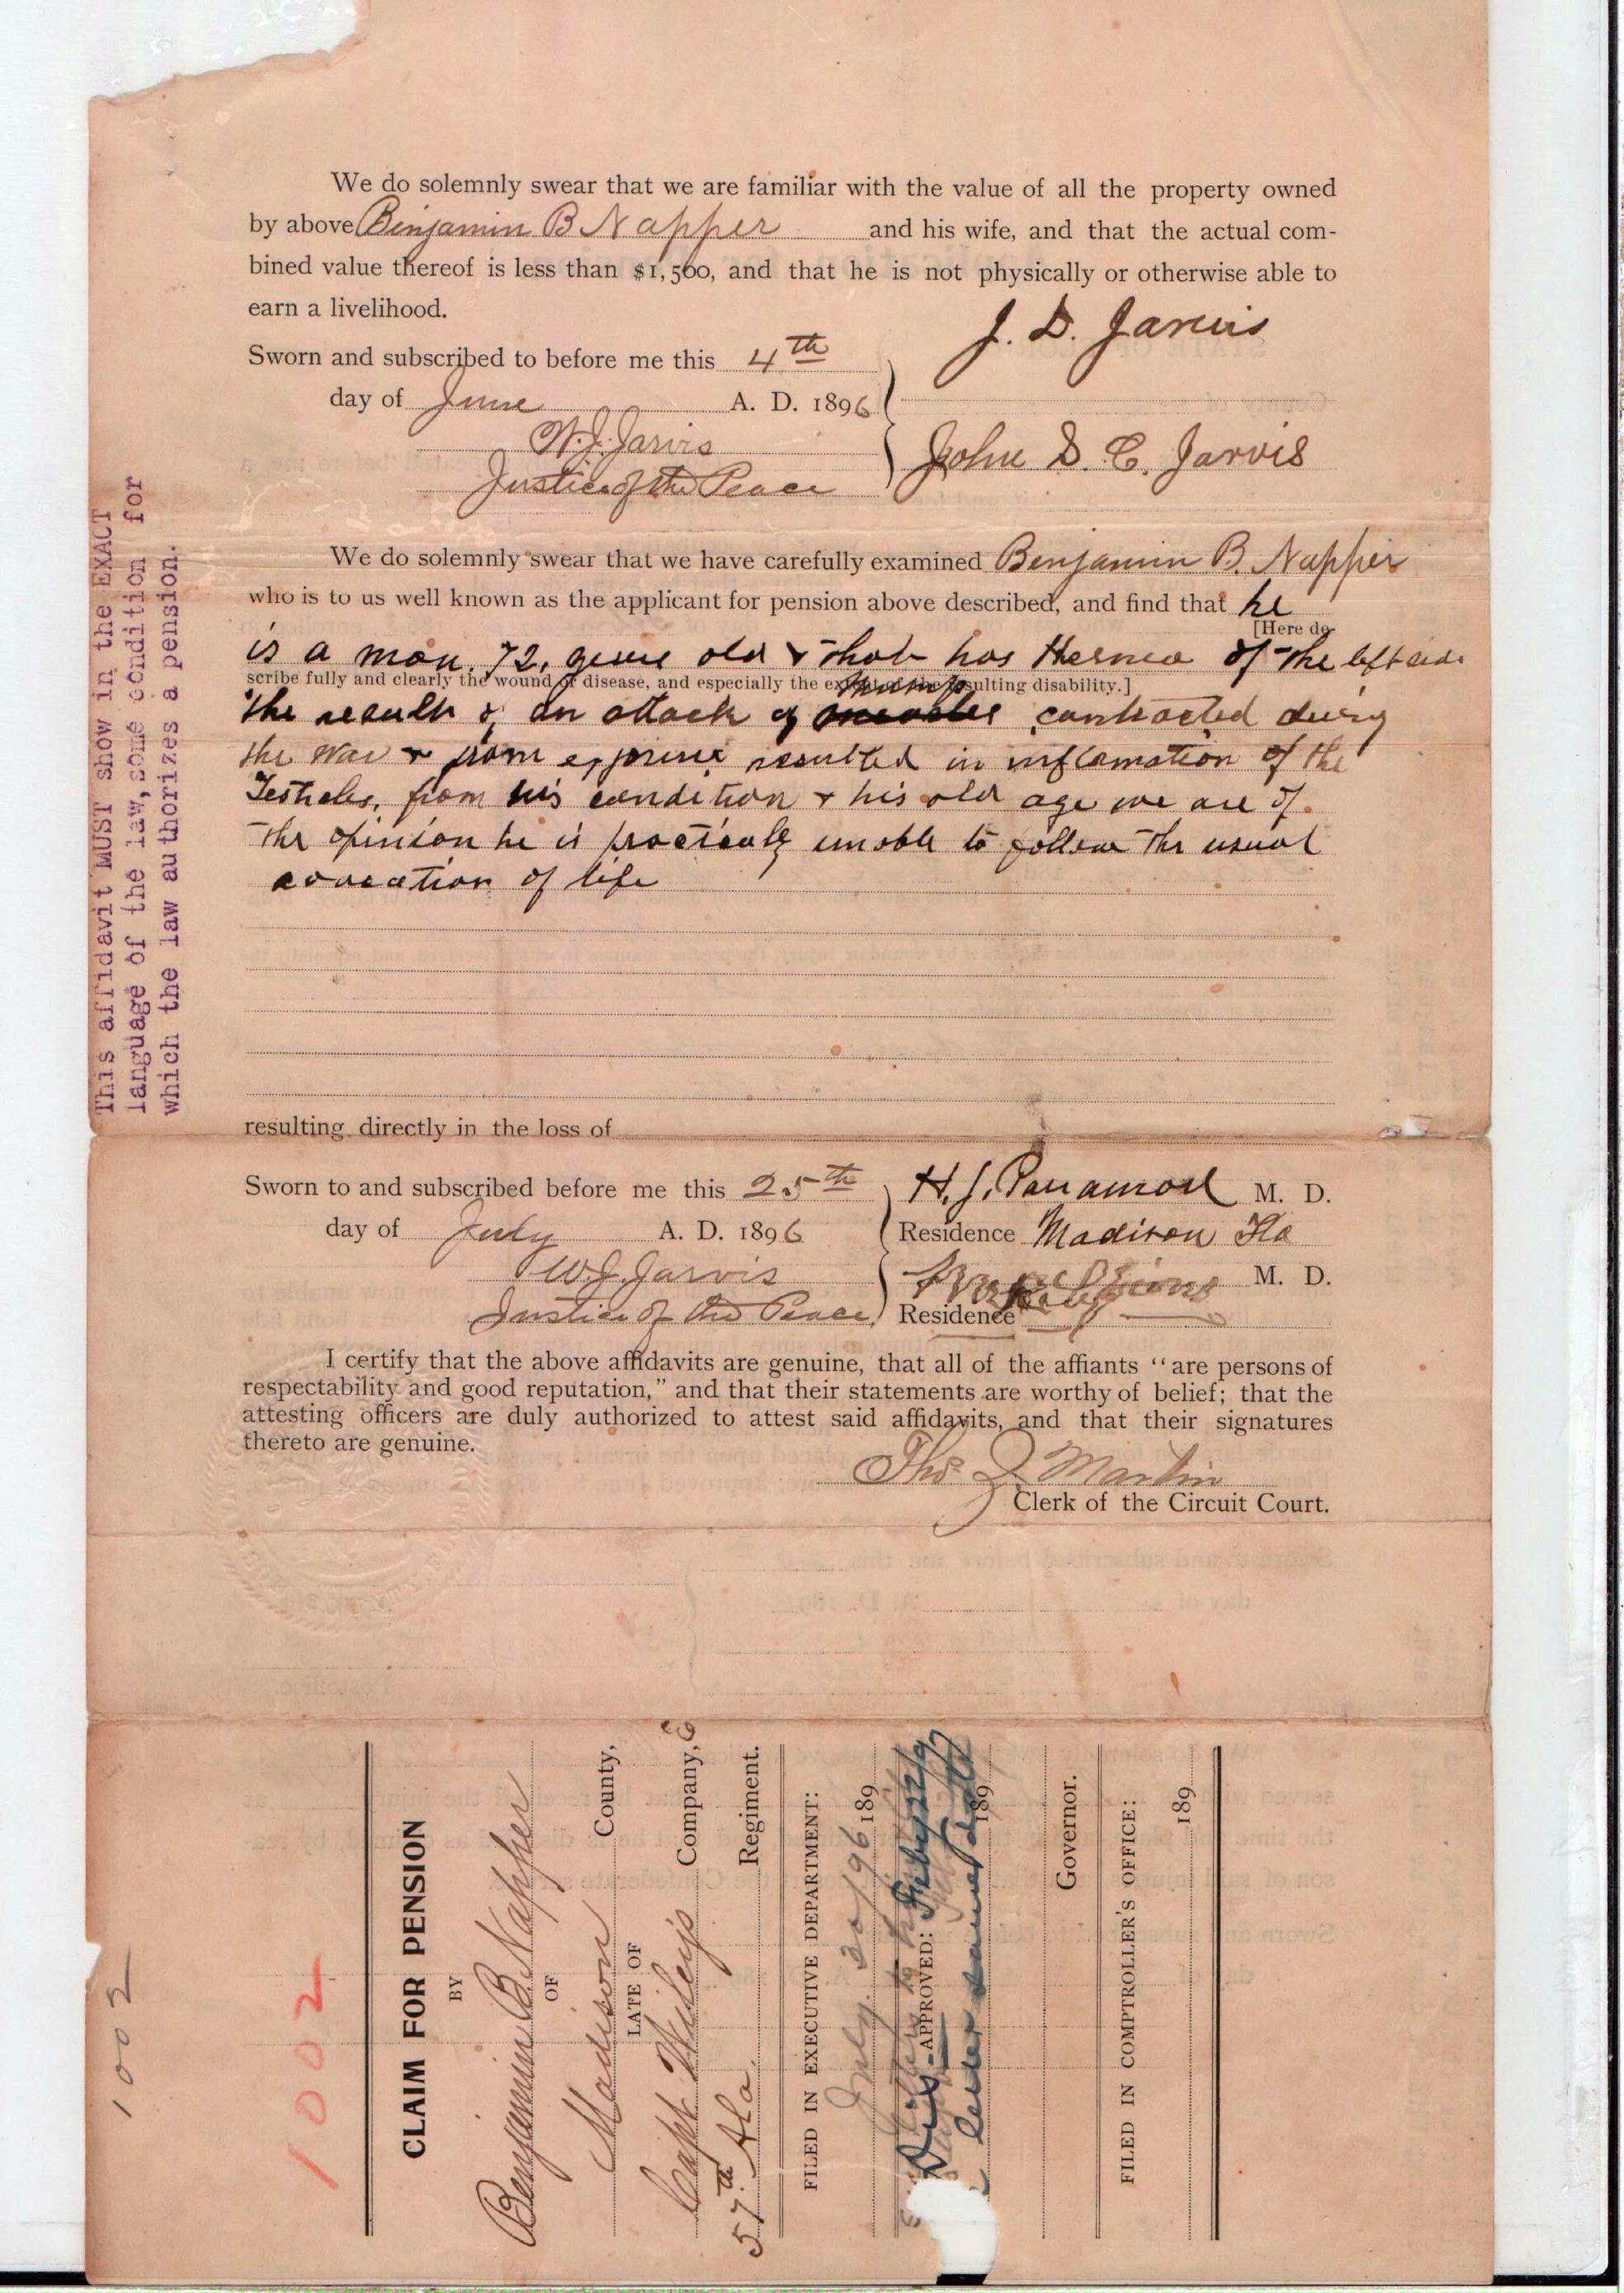 We do solemnly swear that we are familiar with the value of all the property owned
by above Binjamin B Napper and his wife, and that the actual com-
bined value thereof is less than $1,500, and that he is not physically or otherwise able to
earn a livelihood.
J. D. Jarvis
Sworn and subscribed to before me this 4th
day of June A. D. 1896
W. J. Jarvis
John D. C. Jarvis
Justice of the Peace
We do solemnly swear that we have carefully examined Benjamin B. Napper
who is to us well known as the applicant for pension above described, and find that he
[Here de-
is a man 72, years old & that has Hernea of the left side
scribe fully and clearly the wound or disease, and especially the extent of the resulting disability.]
mumps
the result of an attack of measles contracted during
the War & from exposure resulted in inflamation of the
Testicles, from his condition & his old age we are of
the opinion he is practically unable to follow the usual
avocation of life
resulting directly in the loss of
Sworn to and subscribed before me this 25th
H. J. M. D.
day of July A. D. 1896
Residence Madison Fla
W. J. Jarvis
M. D.
Justice of the Peace
Residence
I certify that the above affidavits are genuine, that all of the affiants "are persons of
respectability and good reputation," and that their statements are worthy of belief; that the
attesting officers are duly authorized to attest said affidavits, and that their signatures
thereto are genuine.
Thos Martin
Clerk of the Circuit Court.
This affidavit MUST show in the EXACT
language of the law, some condition for
which the law authorizes a pension.
1002
1002
CLAIM FOR PENSION
BY
Benjamin B. Napper
OF
Madison County,
LATE OF
Capt Wileys Company, E
57th Ala. Regiment.
FILED IN EXECUTIVE DEPARTMENT:
July 30/96 189
Dis-APPROVED: Feby 22/97
letter same date 189
Governor.
FILED IN COMPTROLLER'S OFFICE:
189